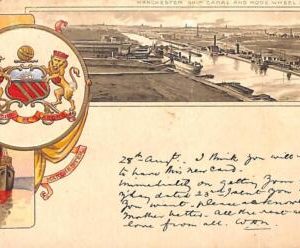 MANCHESTER SHIP CANAL AND MODE WHEEL
28th Augst. I think you will
to have this new card.
Immediately on getting your
day dated 23rd I sent you
you want. please acknow
Mother better. All the rest
love from all. Won